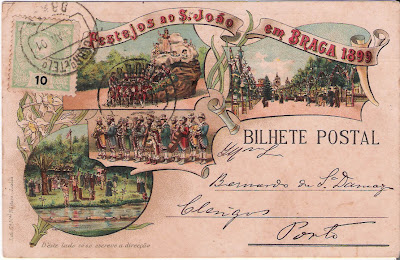 Festejos ao S. João
em BRAGA 1899
10
BILHETE POSTAL
Bernardo de S. Damaz
Clerigos
Porto
N'este lado só se escreve a direcção